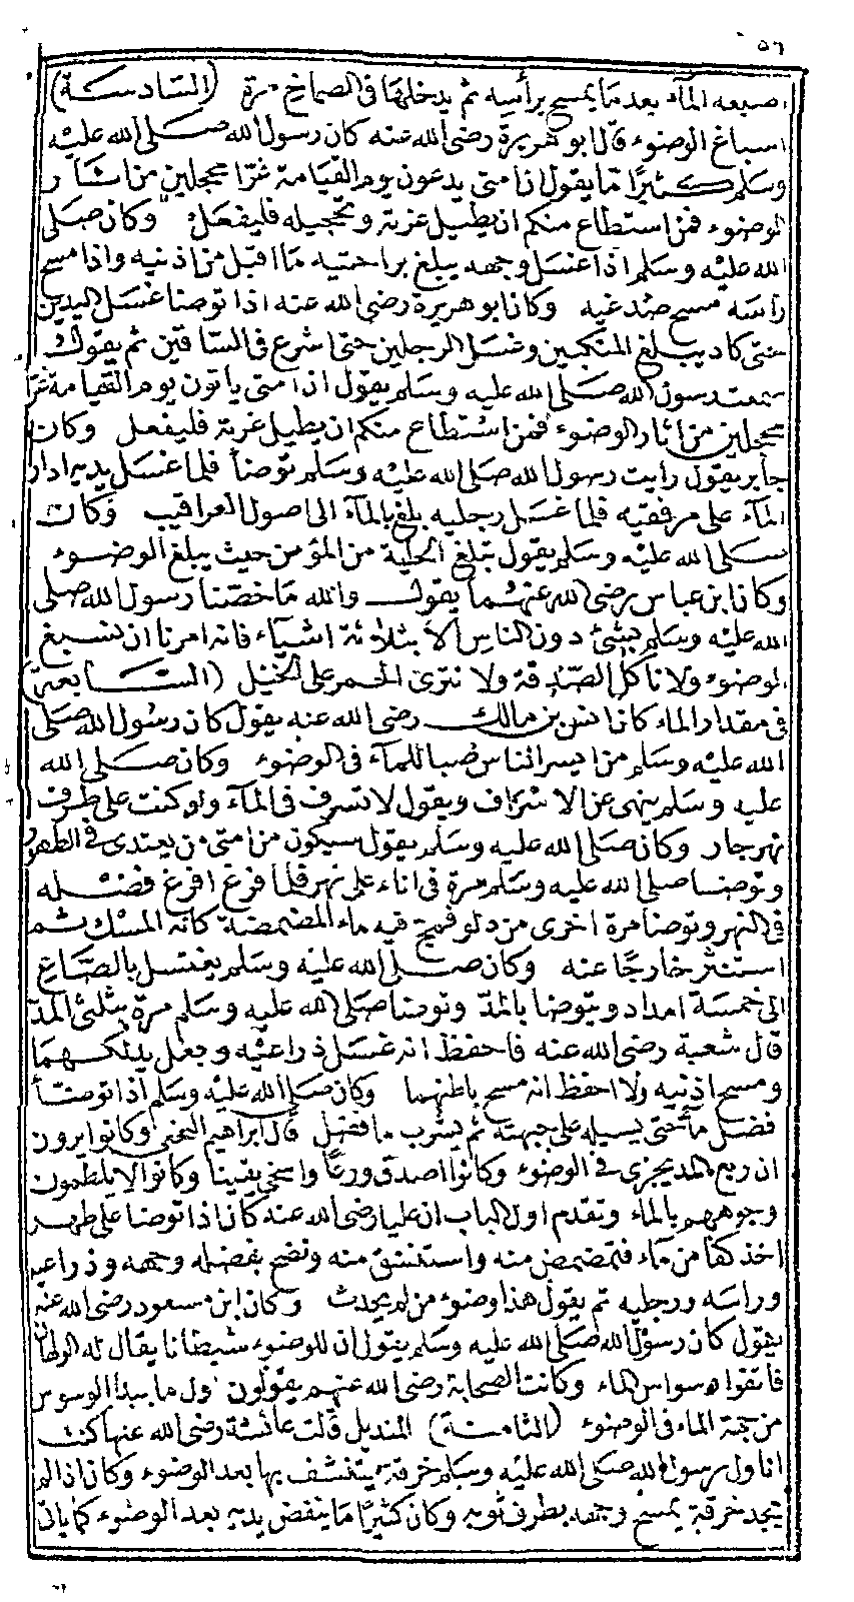 ٥٦
اصبعه الماء بعد ما يمسح برأسه ثم يدخلها فى الصماخ مرة (السادسة)
اسباغ الوضوء قال ابو هريرة رضى الله عنه كان رسول الله صلى الله عليه
وسلم كثيرًا ما يقول ان امتى يدعون يوم القيامة غرّا محجلين من اثار
الوضوء فمن استطاع منكم ان يطيل غرته وتحجيله فليفعل وكان صلى
الله عليه وسلم اذا غسل وجهه يبلغ براحتيه ما اقبل من اذنيه واذا مسح
رأسه مسح صدغيه وكان ابو هريرة رضى الله عنه اذا توضأ غسل اليدين
حتى كاد يبلغ المنكبين وغسل الرجلين حتى اشرع فى الساقين ثم يقول
سمعت رسول الله صلى الله عليه وسلم يقول ان امتى ياتون يوم القيامة غرّا
محجلين من اثار الوضوء فمن استطاع منكم ان يطيل غرته فليفعل وكان
جابر يقول رايت رسول الله صلى الله عليه وسلم توضأ فلما غسل يديه ادار
الماء على مرفقيه فلما غسل رجليه بلغ بالماء الى اصول العراقيب وكان
صلى الله عليه وسلم يقول تبلغ الحلية من المؤمن حيث يبلغ الوضوء
وكان ابن عباس رضى الله عنهما يقول والله ما خصّنا رسول الله صلى
الله عليه وسلم بشئ دون الناس الا بثلاثة اشياء فانه امرنا ان نسبغ
الوضوء ولا نأكل الصدقة ولا ننزى الحمر على الخيل (السابعة)
فى مقدار الماء كان انس بن مالك رضى الله عنه يقول كان رسول الله صلى
الله عليه وسلم من ايسر الناس صبا للماء فى الوضوء وكان صلى الله
عليه وسلم ينهى عن الاسراف ويقول لا تسرف فى الماء ولو كنت على طرف
نهر جار وكان صلى الله عليه وسلم يقول سيكون من امتى من يعتدى فى الطهور
وتوضا صلى الله عليه وسلم مرة فى اناء على نهر فلما فرغ افرغ فضله
فى النهر وتوضا مرة اخرى من دلو فمج فيه ماء المضمضة كانه المسك ثم
استنثر خارجًا عنه وكان صلى الله عليه وسلم يغتسل بالصاع
الى خمسة امداد ويتوضا بالمدّ وتوضا صلى الله عليه وسلم مرة بثلثى المدّ
قال شعبة رضى الله عنه فاحفظ انه غسل ذراعيه وجعل يدلكهما
ومسح اذنيه ولا احفظ انه مسح باطنهما وكان صلى الله عليه وسلم اذا توضأ
فضل ماء حتى يسيله على جبهته ثم يشرب ما فضل قال ابراهيم النخعى وكانوا يرون
ان ربع المد يجزى فى الوضوء وكانوا اصدق ورعًا واسخى يقينا وكانوا لا يلطمون
وجوههم بالماء وتقدم اول الباب ان عليا رضى الله عنه كان اذا توضا على طهر
اخذ كفا من ماء فتمضمض منه واستنشق منه ونضح بفضله وجهه وذراعيه
وراسه ورجليه ثم يقول هذا وضوء من لم يحدث وكان ابن مسعود رضى الله عنه
يقول كان رسول الله صلى الله عليه وسلم يقول ان للوضوء شيطانا يقال له الولهان
فاتقوا وسواس الماء وكانت الصحابة رضى الله عنهم يقولون اول ما يبدا الوسواس
من جهة الماء فى الوضوء (الثامنة) المنديل قالت عائشة رضى الله عنها كنت
اناول رسول الله صلى الله عليه وسلم خرقة يتنشف بها بعد الوضوء وكان اذا لم
يجد خرقة يمسح وجهه بطرف ثوبه وكان كثيرًا ما ينفض يديه بعد الوضوء كما ياتى